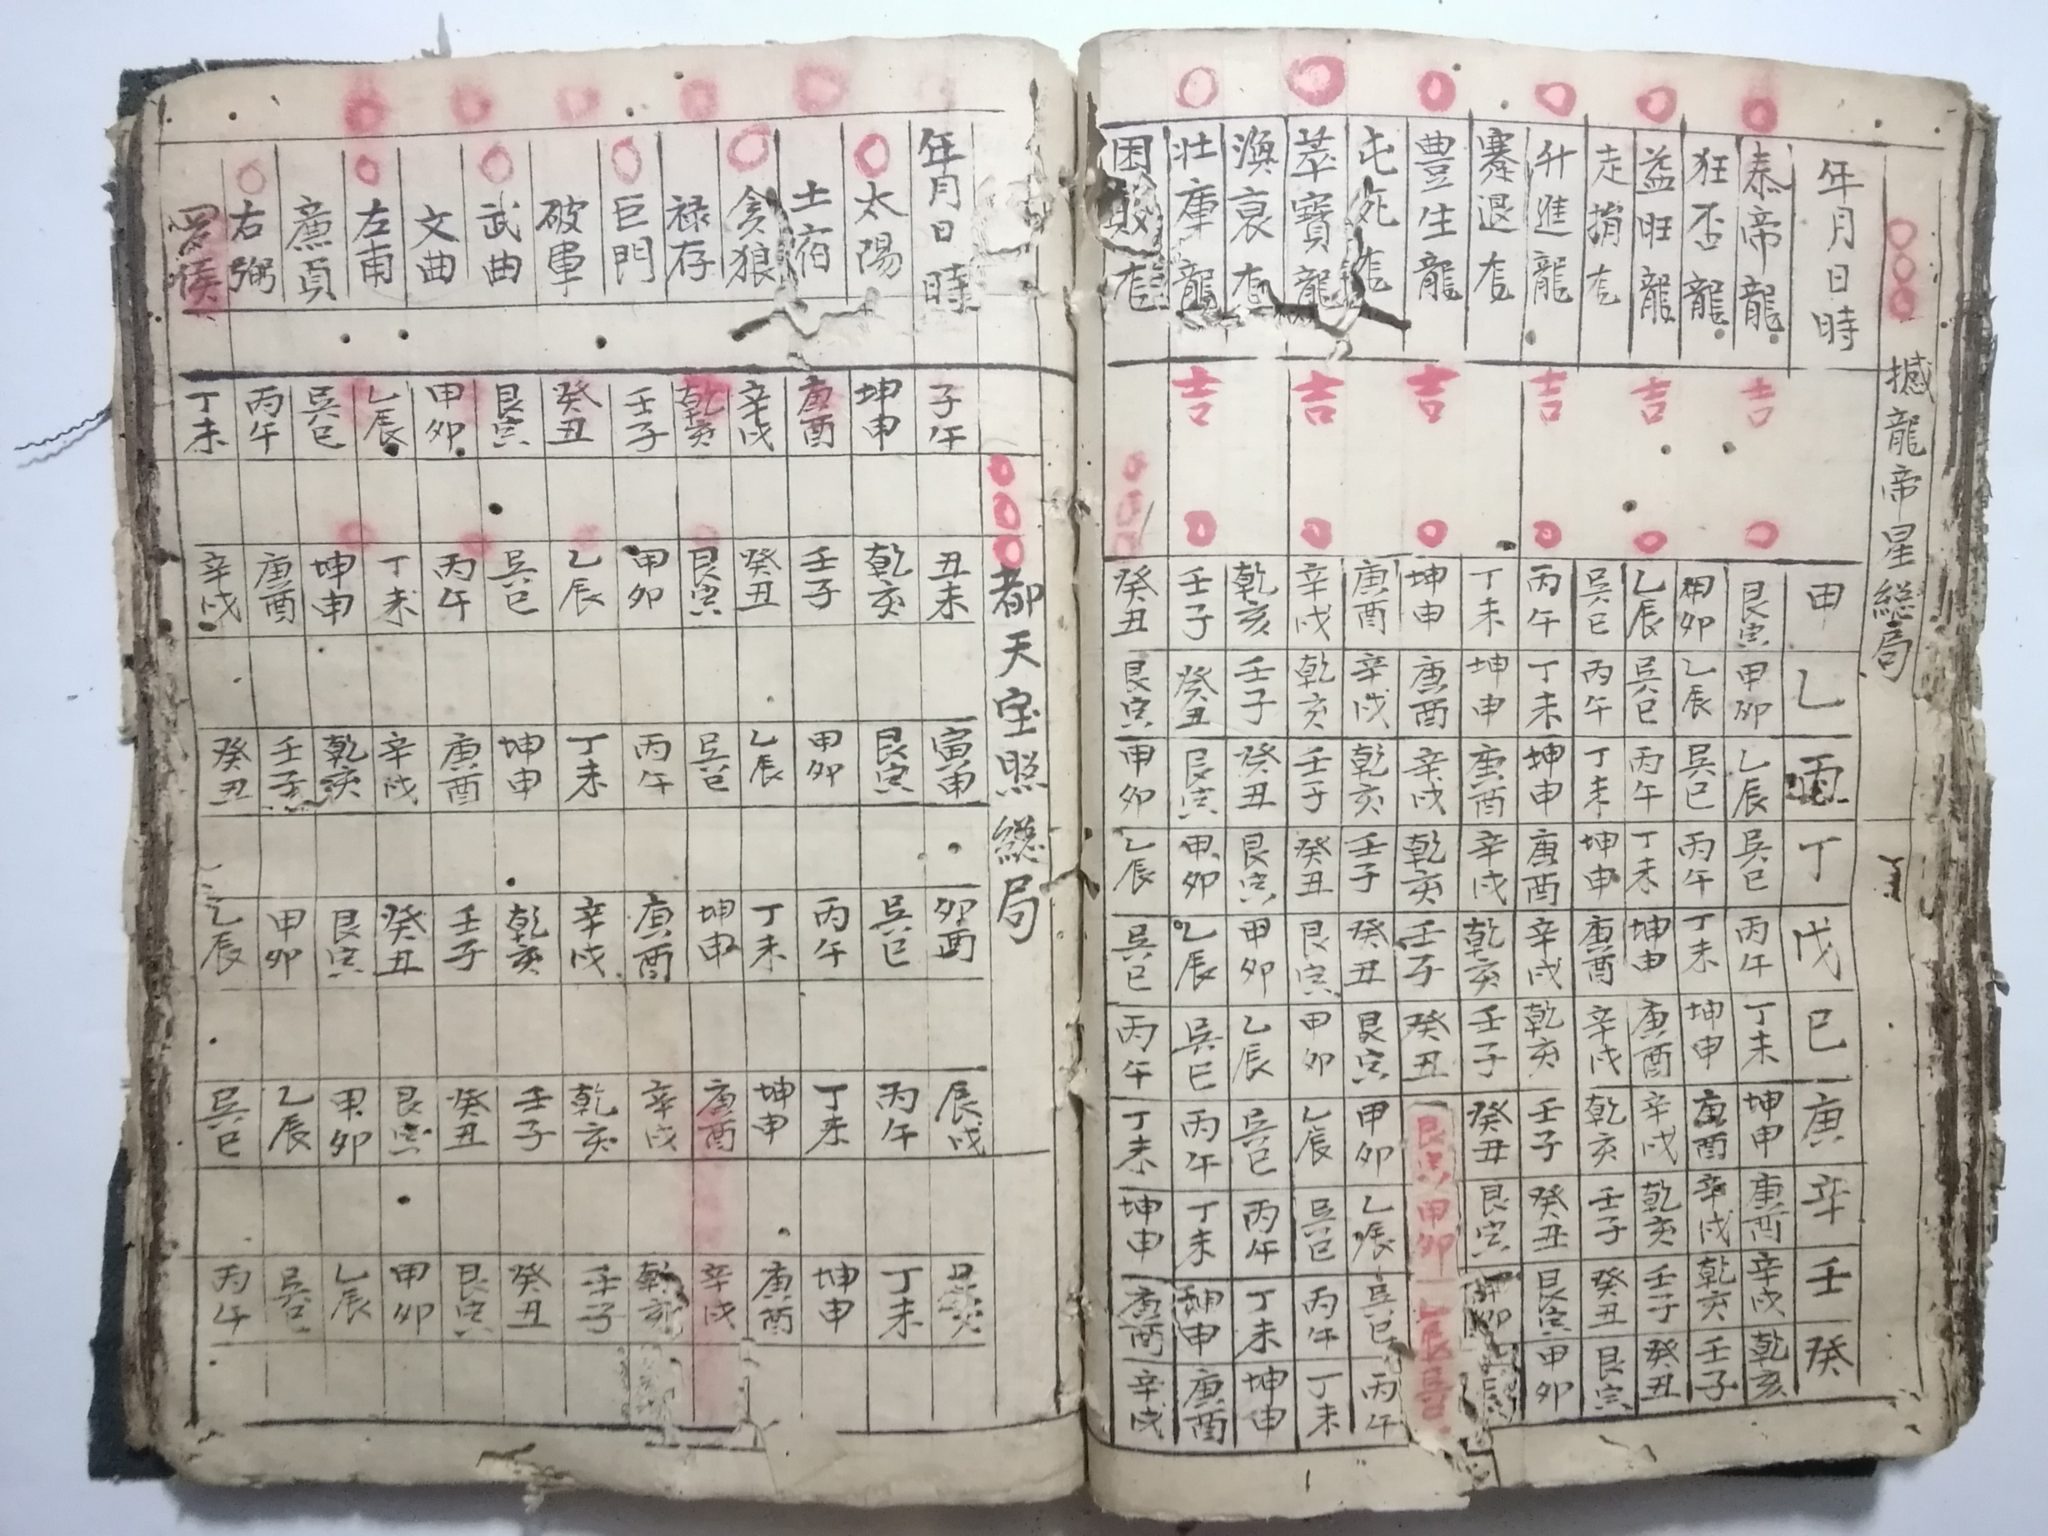 撼龍帝星総局
年月日時 甲 乙 丙 丁 戊 巳 庚 辛 壬 癸
泰帝龍 吉 艮寅 甲卯 乙辰 巽巳 丙午 丁未 坤申 庚酉 辛戌 乾亥
狂否龍 甲卯 乙辰 巽巳 丙午 丁未 坤申 庚酉 辛戌 乾亥 壬子
益旺龍 吉 乙辰 巽巳 丙午 丁未 坤申 庚酉 辛戌 乾亥 壬子 癸丑
走捎尨 巽巳 丙午 丁未 坤申 庚酉 辛戌 乾亥 壬子 癸丑 艮寅
升進龍 吉 丙午 丁未 坤申 庚酉 辛戌 乾亥 壬子 癸丑 艮寅 甲卯
蹇退尨 丁未 坤申 庚酉 辛戌 乾亥 壬子 癸丑 艮寅
豐生龍 吉 坤申 庚酉 辛戌 乾亥 壬子 癸丑 艮寅 甲卯 乙辰 巽巳
屯死尨 庚酉 辛戌 乾亥 壬子 癸丑 艮寅 甲卯 乙辰 巽巳 丙午
萃寶龍 吉 辛戌 乾亥 壬子 癸丑 艮寅 甲卯 乙辰 巽巳 丙午 丁未
渙衰尨 乾亥 壬子 癸丑 艮寅 甲卯 乙辰 巽巳 丙午 丁未 坤申
壯庫龍 吉 壬子 癸丑 艮寅 甲卯 乙辰 巽巳 丙午 丁未 坤申 庚酉
困敗尨 癸丑 艮寅 甲卯 乙辰 巽巳 丙午 丁未 坤申 庚酉 辛戌
都天宝照総局
年月日時 子午 丑未 寅申 卯酉 辰戌
太陽 坤申 乾亥 艮寅 巽巳 丙午 丁未
土宿 庚酉 壬子 甲卯 丙午 丁未 坤申
貪狼 辛戌 癸丑 乙辰 丁未 坤申 庚酉
禄存 乾亥 艮寅 巽巳 坤申 庚酉 辛戌
巨門 壬子 甲卯 丙午 庚酉 辛戌 乾亥
破軍 癸丑 乙辰 丁未 辛戌 乾亥 壬子
武曲 艮寅 巽巳 坤申 乾亥 壬子 癸丑
文曲 甲卯 丙午 庚酉 壬子 癸丑 艮寅
左甫 乙辰 丁未 辛戌 癸丑 艮寅 甲卯
廉貞 巽巳 坤申 乾亥 艮寅 甲卯 乙辰
右弼 丙午 庚酉 壬子 甲卯 乙辰 巽巳
羅睺 丁未 辛戌 癸丑 乙辰 巽巳 丙午